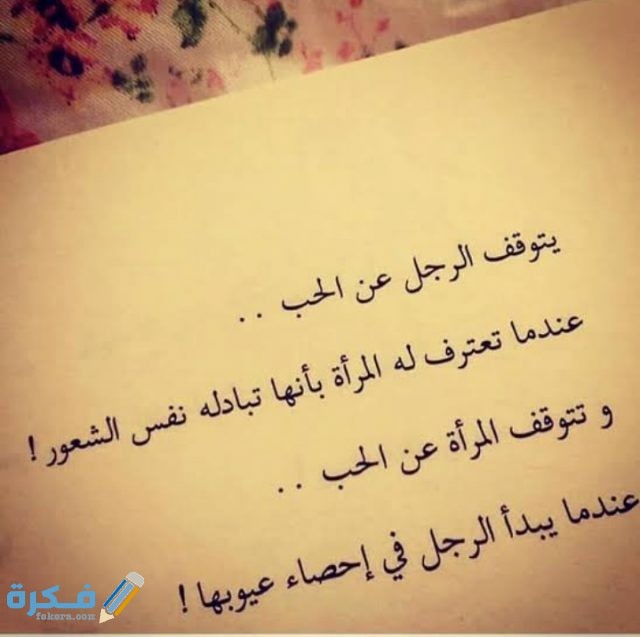 يتوقف الرجل عن الحب . .
عندما تعترف له المرأة بأنها تبادله نفس الشعور !
و تتوقف المرأة عن الحب . .
عندما يبدأ الرجل في إحصاء عيوبها !
فكرة
fokera.com